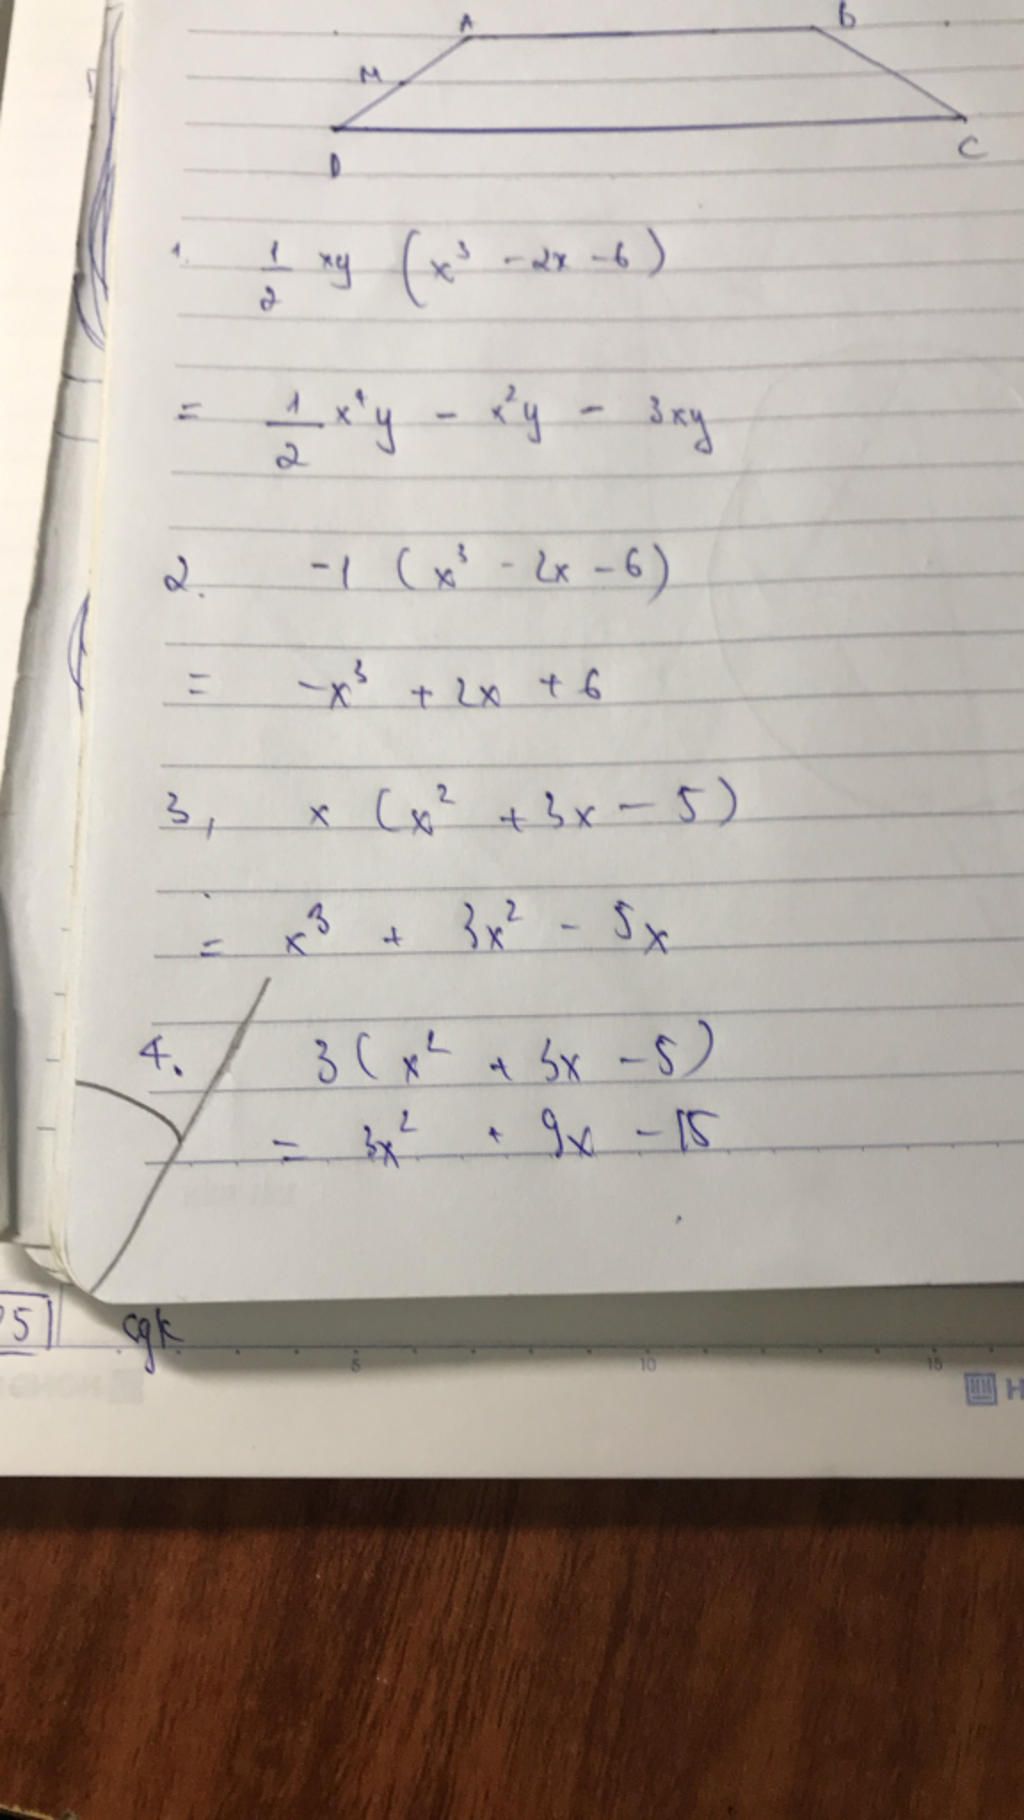 A B
M
D C
1. 1/2 xy (x³ - 2x - 6)
= 1/2 x⁴y - x²y - 3xy
2. -1 (x³ - 2x - 6)
= -x³ + 2x + 6
3, x (x² + 3x - 5)
= x³ + 3x² - 5x
4. 3(x² + 3x - 5)
= 3x² + 9x - 15
5 cgk
5 10 15
H